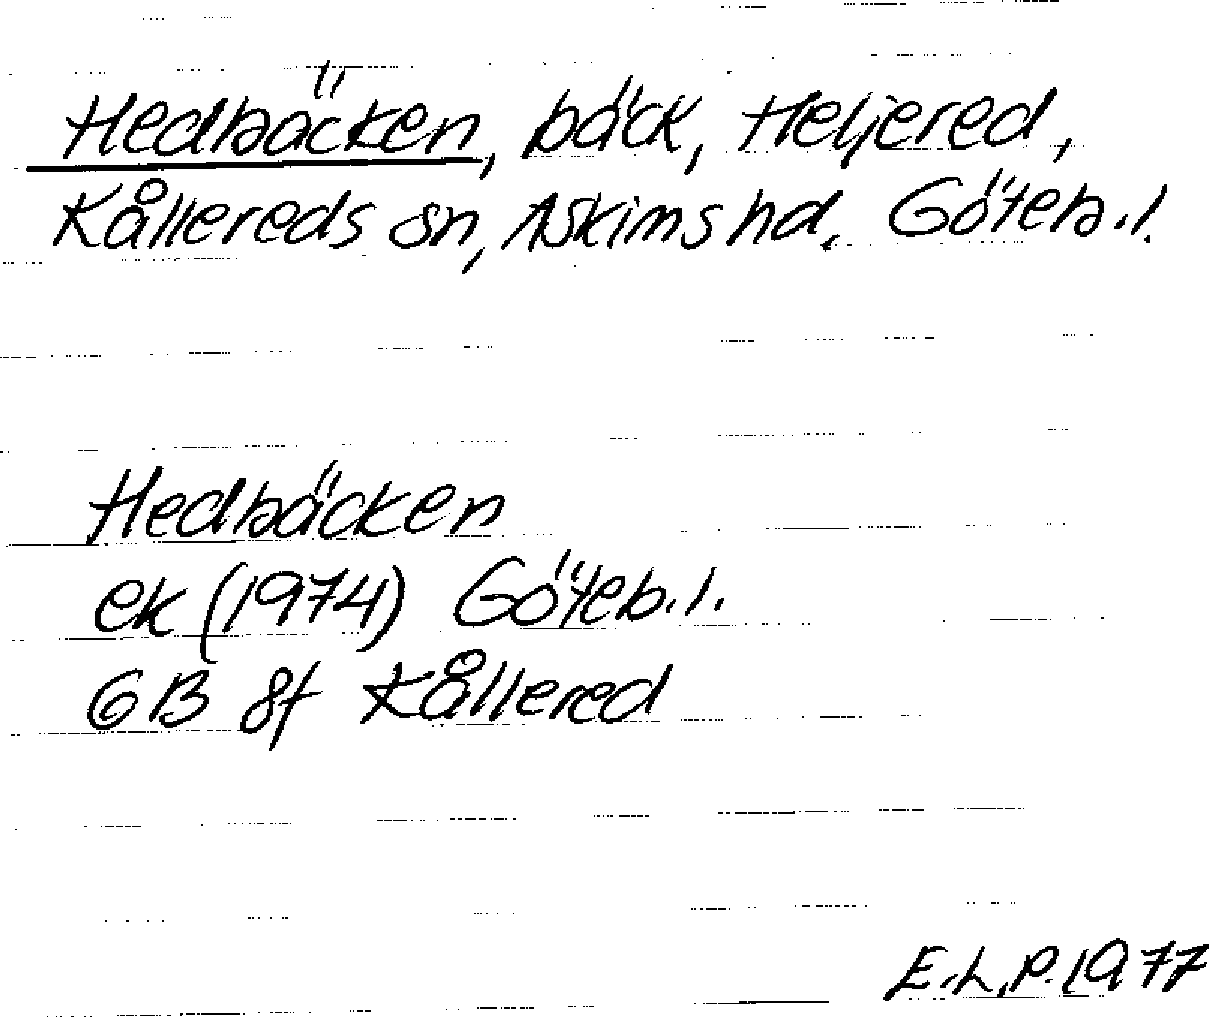 Hedbäcken, bäck, Heljered,
Kållereds sn, Askims hd. Göteb.l.
Hedbäcken
ek (1974) Göteb.l.
6B 8f Kållered
E.L.P. 1977